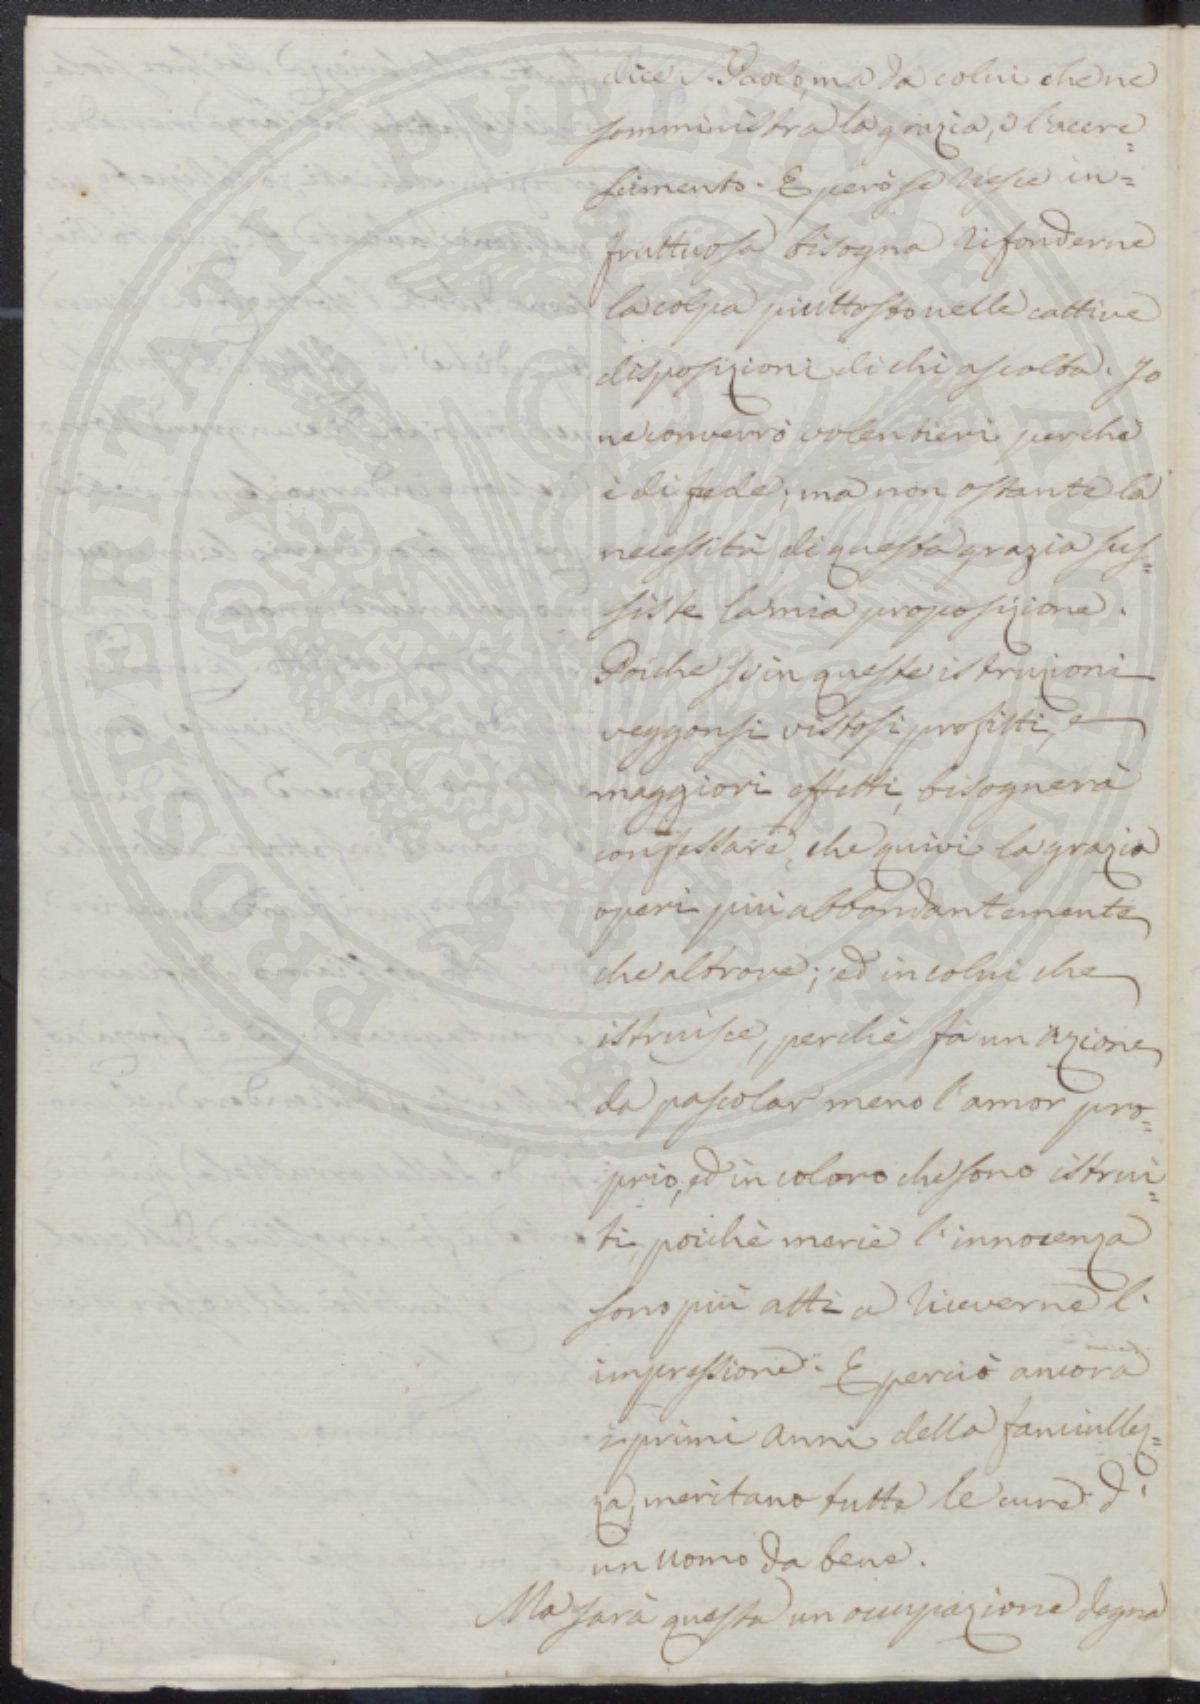 dice S. Paolo, ma da colui che ne
somministra la grazia, e l'accre=
scimento. E però se riesce in=
fruttuosa bisogna rifonderne
la colpa piuttosto nelle cattive
disposizioni di chi ascolta. Io
ne converrò volentieri perchè
è di fede; ma non ostante la
necessità di questa grazia sus=
siste la mia proposizione.
Poiche se in queste istruzioni
veggonsi vistosi profitti, e
maggiori effetti, bisognerà
confessare, che quivi la grazia
operi più abbondantemente
che altrove; ed in colui che
istruisce, perchè fà un azione
da pascolar meno l'amor pro=
prio, ed in coloro che sono istrui=
ti, poichè mercè l'innocenza
sono più atti a riceverne l'
impressione. E perciò ancora
i primi anni della fanciullez=
za, meritano tutte le cure d'
un uomo da bene.
Ma sarà questa un occupazione degna
PROSPERITATI PUBLICAE AUGENDAE